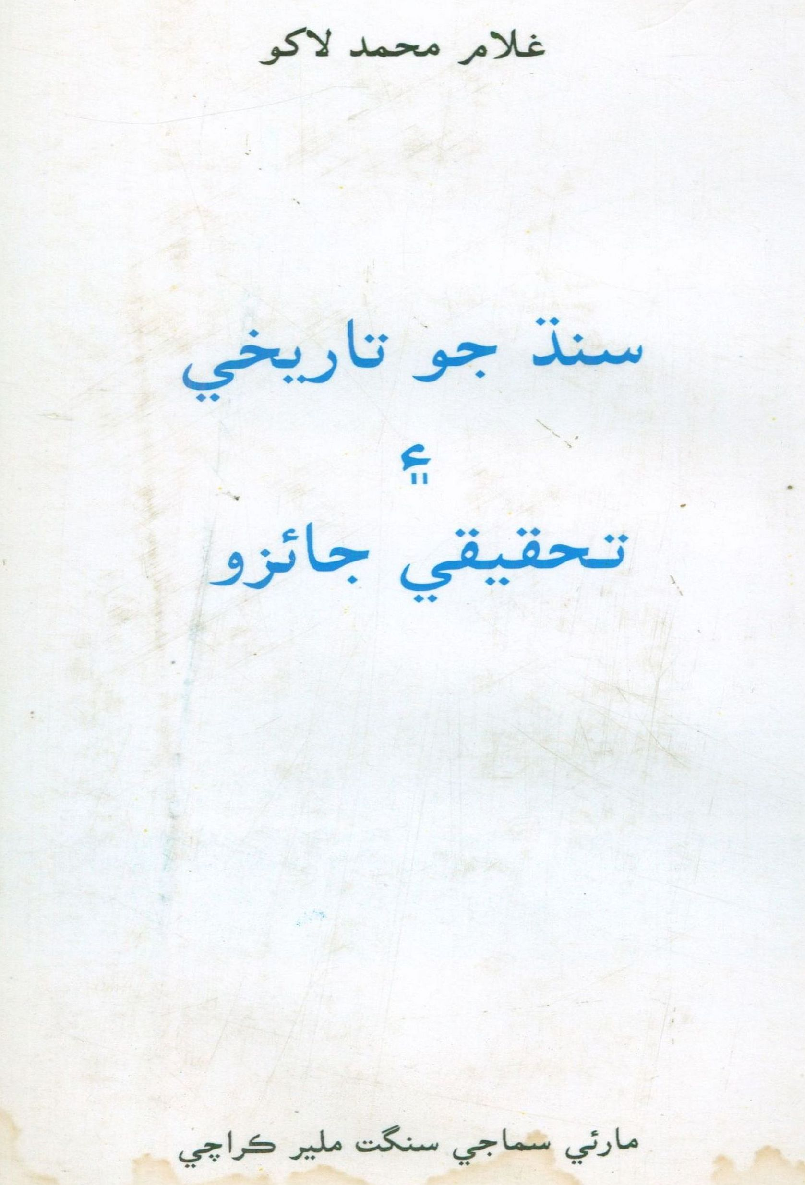 غلام محمد لاکو
سنڌ جو تاريخي
۽
تحقيقي جائزو
مارئي سماجي سنگت ملير ڪراچي